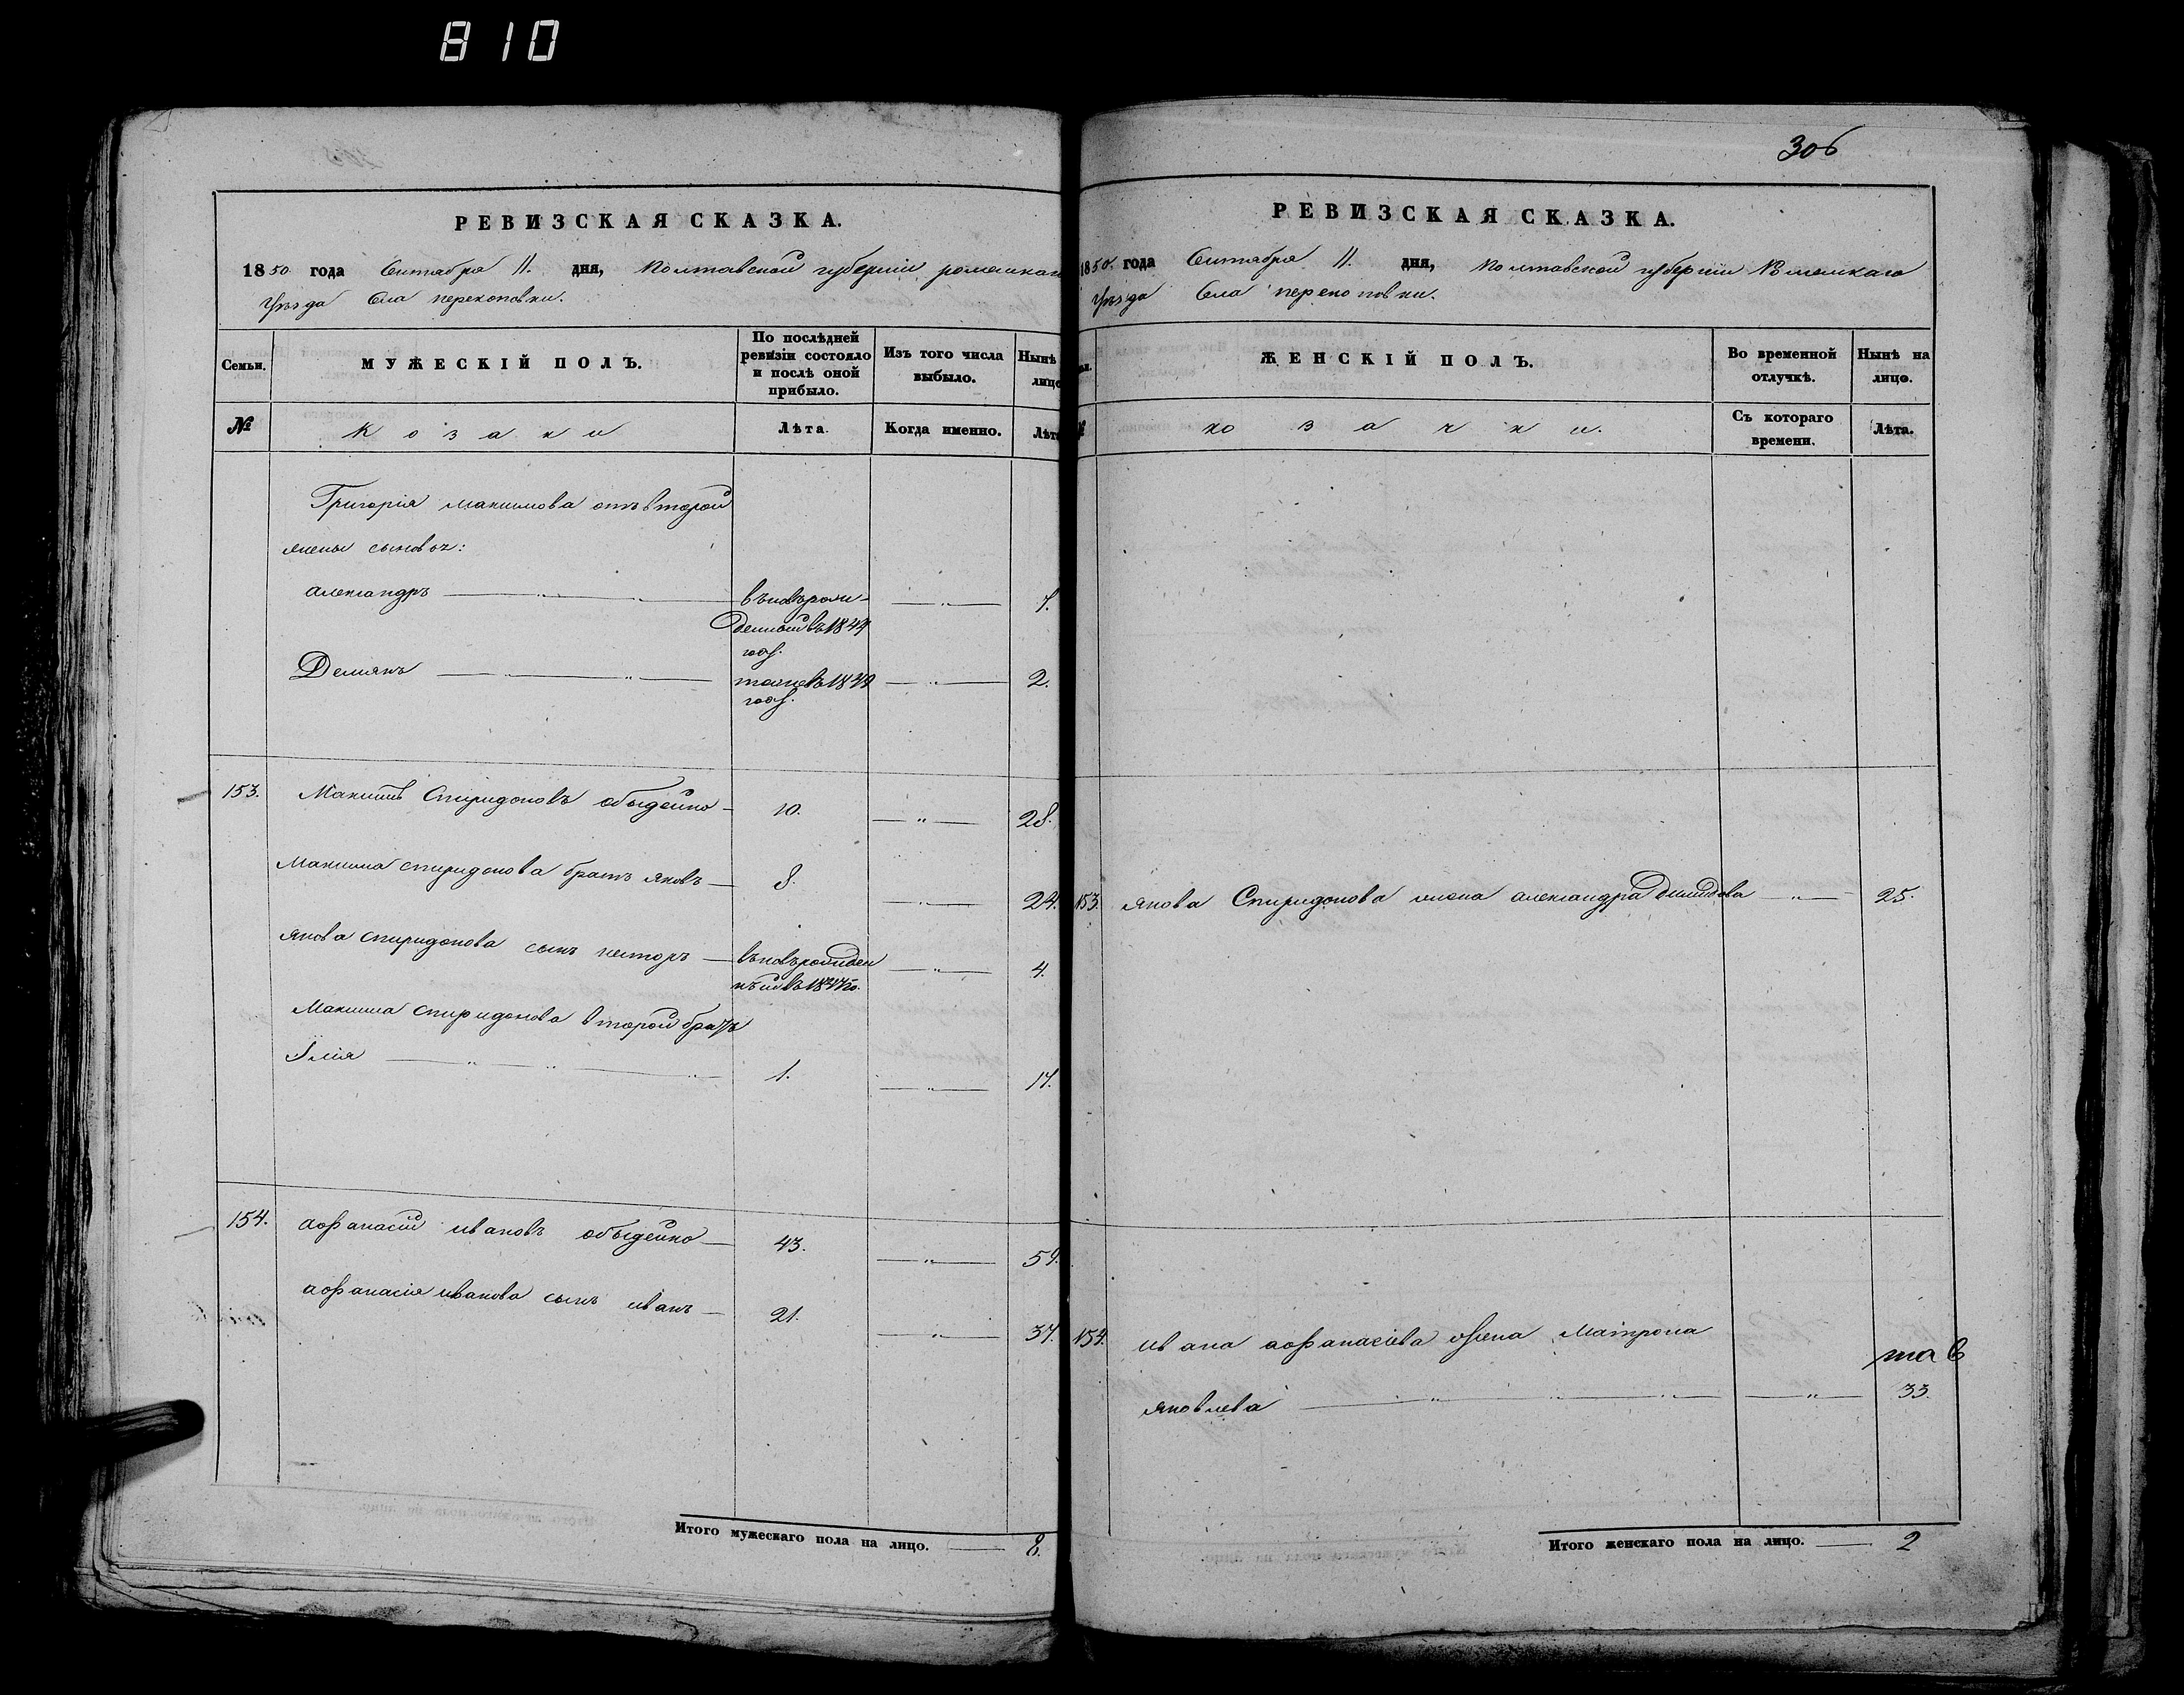 810
РЕВИЗСКАЯ СКАЗКА.
1850 года Сентября 11. дня, Полтавской губерніи роменскаго
уѣзда Села перекоповки.
Семьи.
МУЖЕСКІЙ ПОЛЪ.
По послѣдней
ревизіи состояло
и послѣ оной
прибыло.
Изъ того числа
выбыло.
Нынѣ
лицо
№
Козаки
Лѣта.
Когда именно.
Лѣта
Григорія максимова отъ второй
жены сыновья:
александръ вновьрож-
денный въ 1844 7.
год.
Демянъ тоже въ 1849 2.
год.
153. Максимъ Спиридоновъ обыдейко 10. 28.
Максима спиридонова братъ яковъ 8. 24.
якова спиридонова сынъ несторъ вновьрожден 4.
ный въ 1847 го.
Максима спиридонова второй братъ
Ілія 1. 17.
154. афанасій ивановъ обыдейко 43. 59.
афанасія иванова сынъ иванъ 21. 37.
Итого мужескаго пола на лицо. 8.
306
РЕВИЗСКАЯ СКАЗКА.
1850. года Сентября 11. дня, Полтавской губерніи Роменскаго
уѣзда Села перекоповки.
ЖЕНСКІЙ ПОЛЪ.
Во временной
отлучкѣ.
Нынѣ на
лицо.
козачки.
Съ котораго
времени.
Лѣта.
153 якова Спиридонова жена александра Демидова 25.
154. ивана афанасіева жена Матрона
яковлева 33.
Итого женскаго пола на лицо. 2